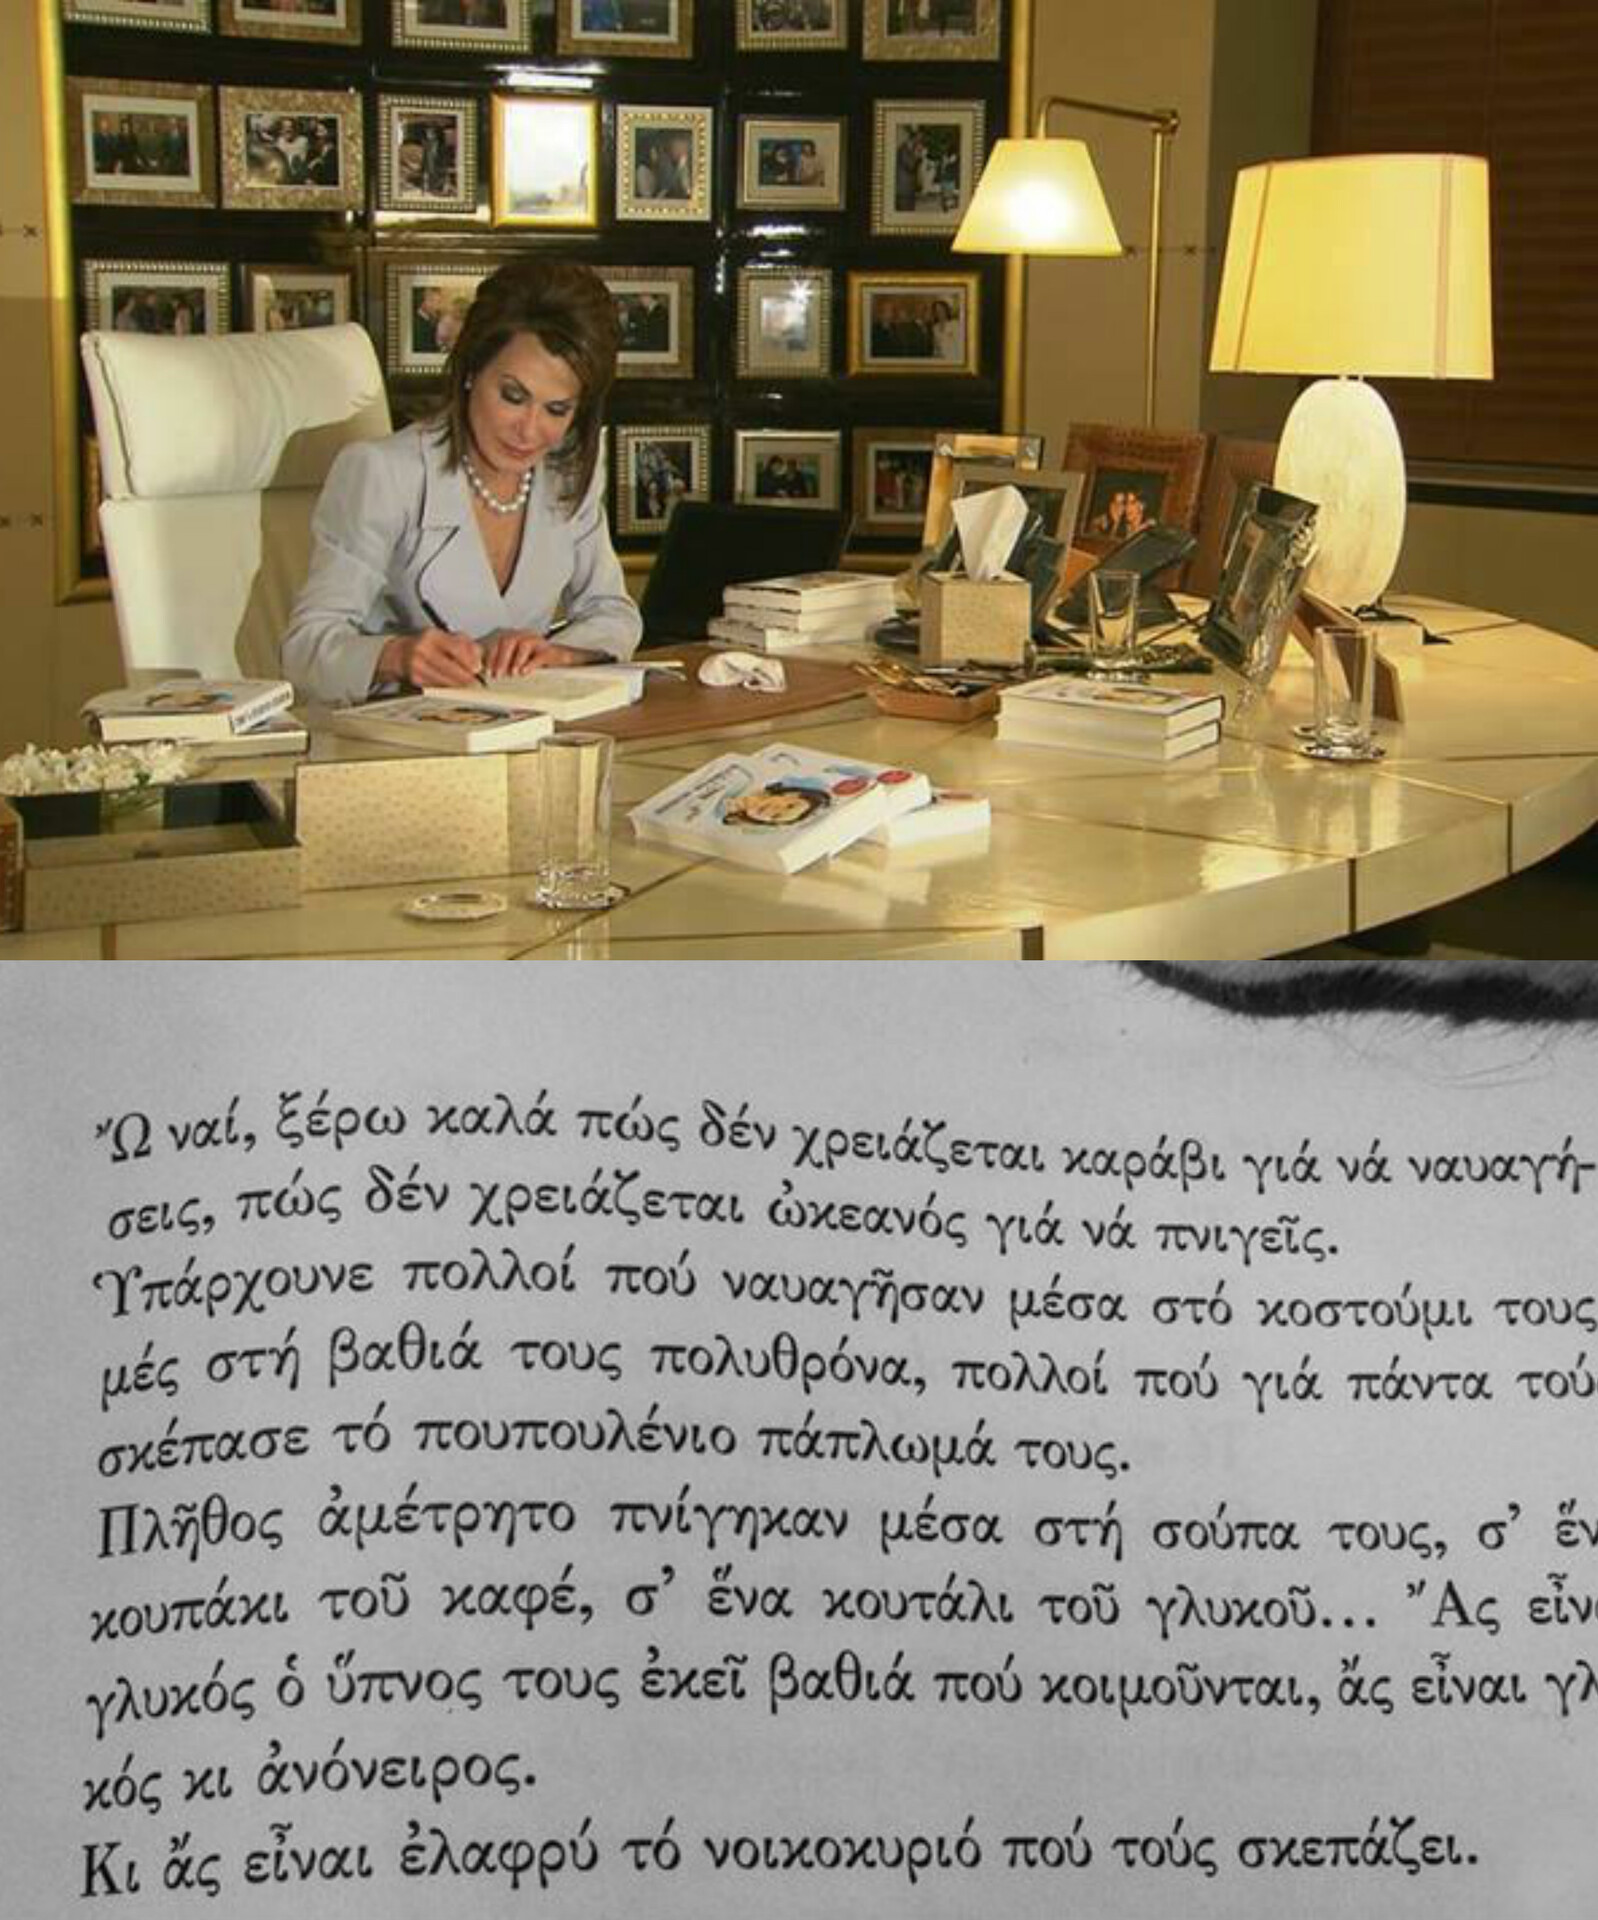 Ὤ ναί, ξέρω καλά πώς δέν χρειάζεται καράβι γιά νά ναυαγή-
σεις, πώς δέν χρειάζεται ὠκεανός γιά νά πνιγεῖς.
Ὑπάρχουνε πολλοί πού ναυαγῆσαν μέσα στό κοστούμι τους
μές στή βαθιά τους πολυθρόνα, πολλοί πού γιά πάντα τού
σκέπασε τό πουπουλένιο πάπλωμά τους.
Πλῆθος ἀμέτρητο πνίγηκαν μέσα στή σούπα τους, σ' ἕν
κουπάκι τοῦ καφέ, σ' ἕνα κουτάλι τοῦ γλυκοῦ... Ἄς εἶν
γλυκός ὁ ὕπνος τους ἐκεῖ βαθιά πού κοιμοῦνται, ἄς εἶναι γλ
κός κι ἀνόνειρος.
Κι ἄς εἶναι ἐλαφρύ τό νοικοκυριό πού τούς σκεπάζει.